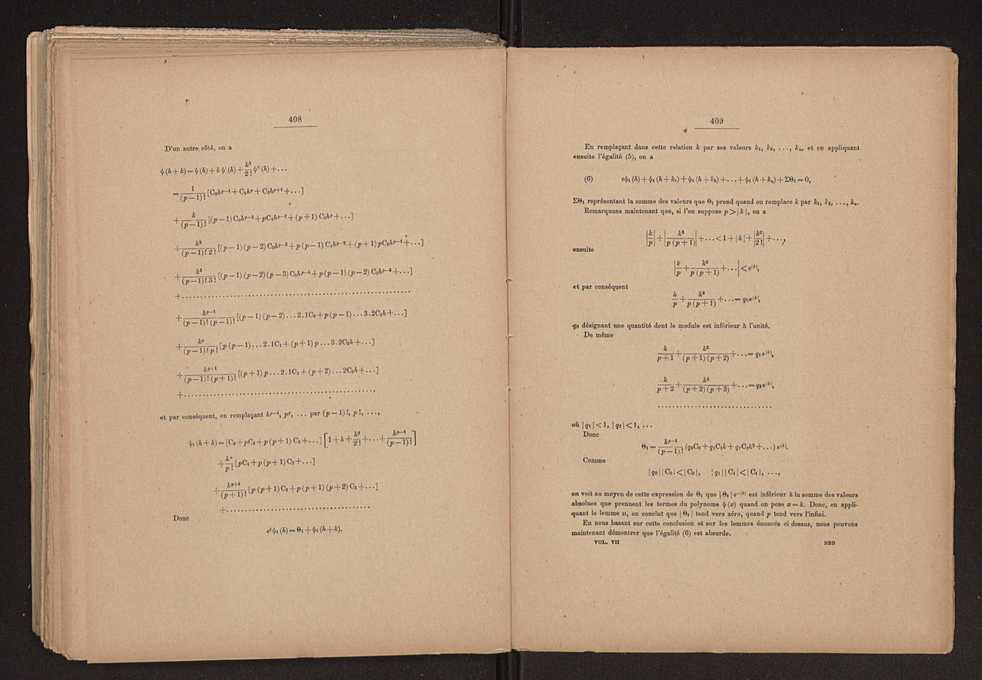 408
D'un autre côté, on a
ψ(h+k)=ψ(h)+kψ'(h)+k²/2! ψ''(h)+...
=1/(p—1)! [C₀hᵖ⁻¹+C₁hᵖ+C₂hᵖ⁺¹+...]
+k/(p—1)! [(p—1)C₀hᵖ⁻²+pC₁hᵖ⁻¹+(p+1)C₂hᵖ+...]
+k²/(p—1)!2! [(p—1)(p—2)C₀hᵖ⁻³+p(p—1)C₁hᵖ⁻²+(p+1)pC₂hᵖ⁻¹+...]
+k³/(p—1)!3! [(p—1)(p—2)(p—3)C₀hᵖ⁻⁴+p(p—1)(p—2)C₁hᵖ⁻³+...]
+........................................
+kᵖ⁻¹/(p—1)!(p—1)! [(p—1)(p—2)...2.1C₀+p(p—1)...3.2C₁h+...]
+kᵖ/(p—1)!p! [p(p—1)...2.1C₁+(p+1)p...3.2C₂h+...]
+kᵖ⁺¹/(p—1)!(p+1)! [(p+1)p...2.1C₂+(p+2)...2C₃h+...]
+........................................
et par conséquent, en remplaçant hᵖ⁻¹, hᵖ, ... par (p—1)!, p!, ...,
ψ₁(h+k)=[C₀+pC₁+p(p+1)C₂+...][1+k+k²/2!+...+kᵖ⁻¹/(p—1)!]
+kᵖ/p! [pC₁+p(p+1)C₂+...]
+kᵖ⁺¹/(p+1)! [p(p+1)C₂+p(p+1)(p+2)C₃+...]
+........................................
Donc
eᵏψ₁(h)=Θ₁+ψ₁(h+k).
409
En remplaçant dans cette relation k par ses valeurs k₁, k₂, ..., kₙ, et en appliquant
ensuite l'égalité (5), on a
(6) eψ₁(h)+ψ₁(h+k₁)+ψ₁(h+k₂)+...+ψ₁(h+kₙ)+ΣΘ₁=0,
ΣΘ₁ représentant la somme des valeurs que Θ₁ prend quand on remplace k par k₁, k₂, ..., kₙ.
Remarquons maintenant que, si l'on suppose p>|k|, on a
|k/p|+|k²/p(p+1)|+...<1+|k|+|k²/2!|+...,
ensuite
|k/p+k²/p(p+1)+...|<e^|k|,
et par conséquent
k/p+k²/p(p+1)+...=q₀e^|k|,
q₀ désignant une quantité dont le module est inférieur à l'unité.
De même
k/p+1+k²/(p+1)(p+2)+...=q₁e^|k|,
k/p+2+k²/(p+2)(p+3)+...=q₂e^|k|,
..............................
où |q₁|<1, |q₂|<1, ...
Donc
Θ₁=kᵖ⁻¹/(p—1)! (q₀C₀+q₁C₁k+q₂C₂k²+...)e^|k|.
Comme
|q₀||C₀|<|C₀|, |q₁||C₁|<|C₁|, ...,
on voit au moyen de cette expression de Θ₁ que |Θ₁|e^—|k| est inférieur à la somme des valeurs
absolues que prennent les termes du polynome ψ(x) quand on pose x=k. Donc, en appli-
quant le lemme II, on conclut que |Θ₁| tend vers zéro, quand p tend vers l'infini.
En nous basant sur cette conclusion et sur les lemmes énoncés ci dessus, nous pouvons
maintenant démontrer que l'égalité (6) est absurde.
VOL. VII
BBB